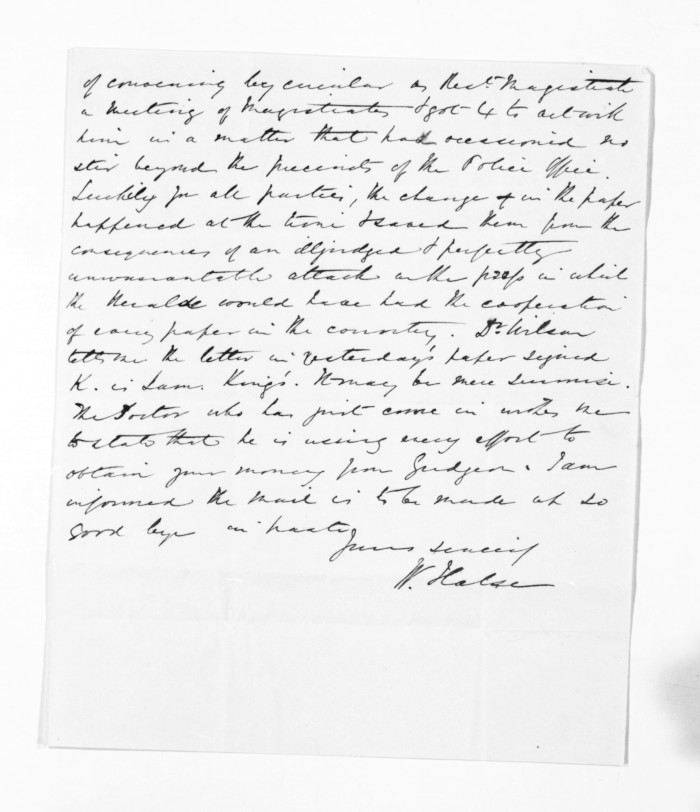 of convening by circular as Rest. Magistrate
a meeting of Magistrates & got 4 to act with
him in a matter that had occasioned no
stir beyond the precincts of the Police Office.
Luckily for all parties, the change in the paper
happened at the time & saved them from the
consequences of an illjudged & perfectly
unwarrantable attack on the press in which
the Herald would have had the cooperation
of every paper in the country. Dr. Wilson
tells me the letter in yesterday's paper signed
K. is Sam. King's. It may be mere surmise.
The Doctor who has just come in wishes me
to state that he is using every effort to
obtain your money from Gudgeon. I am
informed the mail is to be made up so
good bye in haste
Yours sincerely
W. Halse